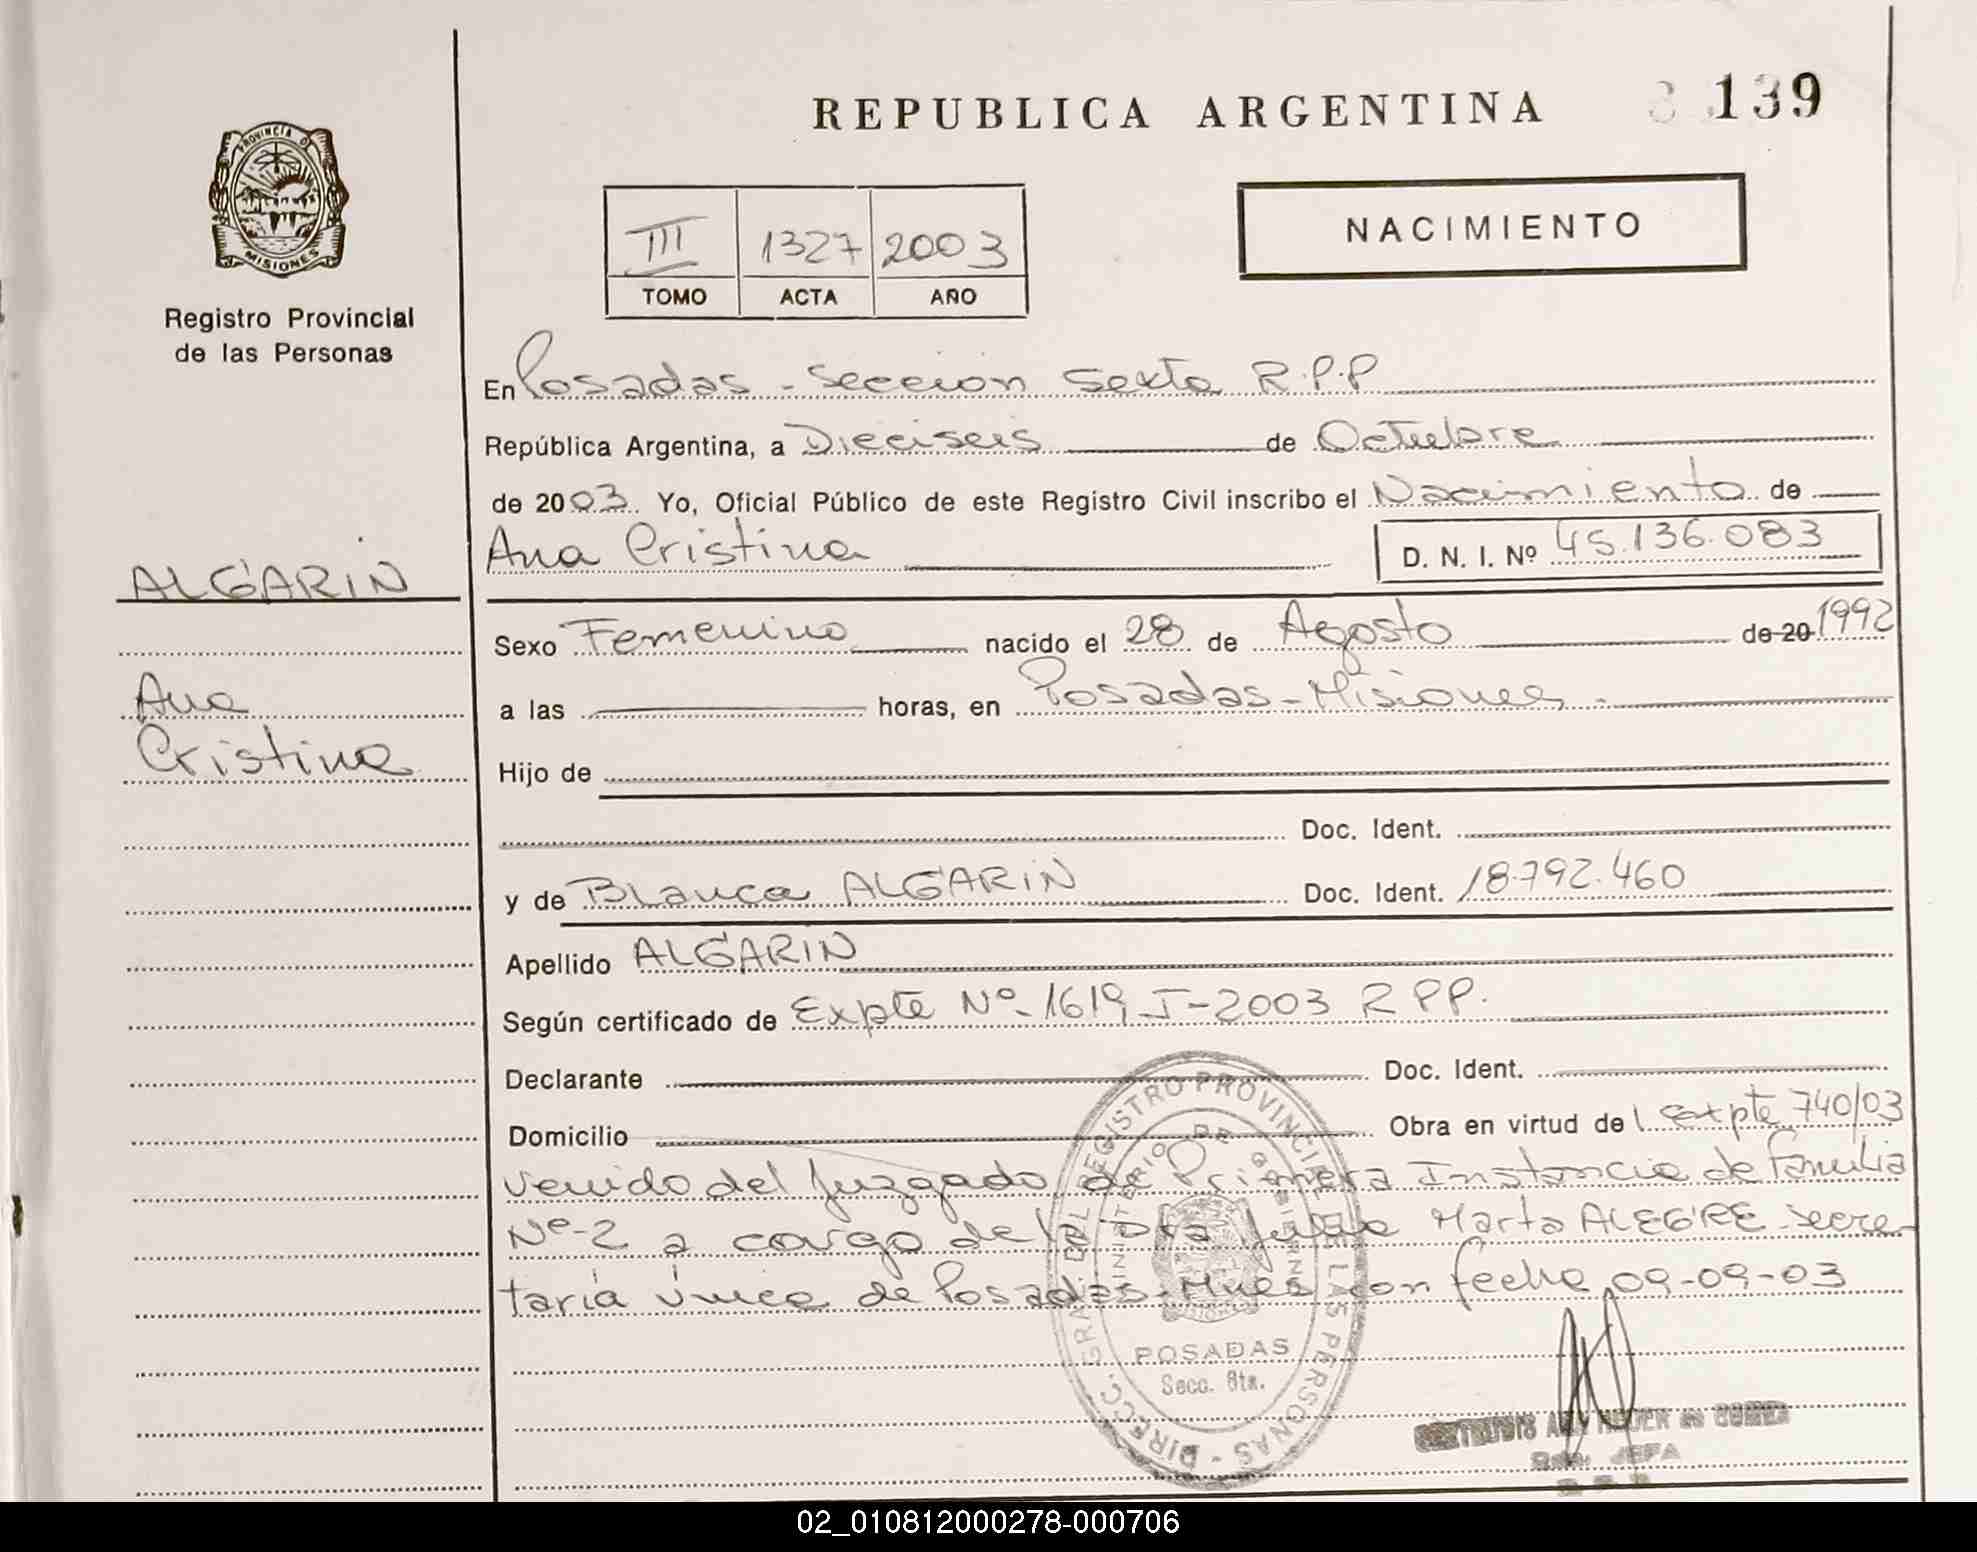 REPUBLICA ARGENTINA 139
PROVINCIA D
MISIONES
Registro Provincial
de las Personas
III 1327 2003
TOMO ACTA AÑO
NACIMIENTO
En Posadas - Seccion Sexta R.P.P
República Argentina, a Dieciseis de Octubre
de 2003. Yo, Oficial Público de este Registro Civil inscribo el Nacimiento de
Ana Cristina D. N. I. Nº 45.136.083
ALGARIN
Sexo Femenino nacido el 28 de Agosto de 20 1992
Ana
Cristina
a las horas, en Posadas - Misiones -
Hijo de
Doc. Ident.
y de Blanca ALGARIN Doc. Ident. 18.792.460
Apellido ALGARIN
Según certificado de Expte Nº 1619-I-2003 R P P.
Declarante Doc. Ident.
Domicilio Obra en virtud del expte 740/03
venido del Juzgado de Primera Instancia de Familia
Nº-2 a cargo de la Dra Marta ALEGRE - Secre-
taría única de Posadas - Mnes con fecha 09-09-03
DIRECC. GRAL DEL REGISTRO PROVINCIAL DE LAS PERSONAS
MINISTERIO DE GOBIERNO
POSADAS
Secc. 6ta.
JEFA
02_010812000278-000706